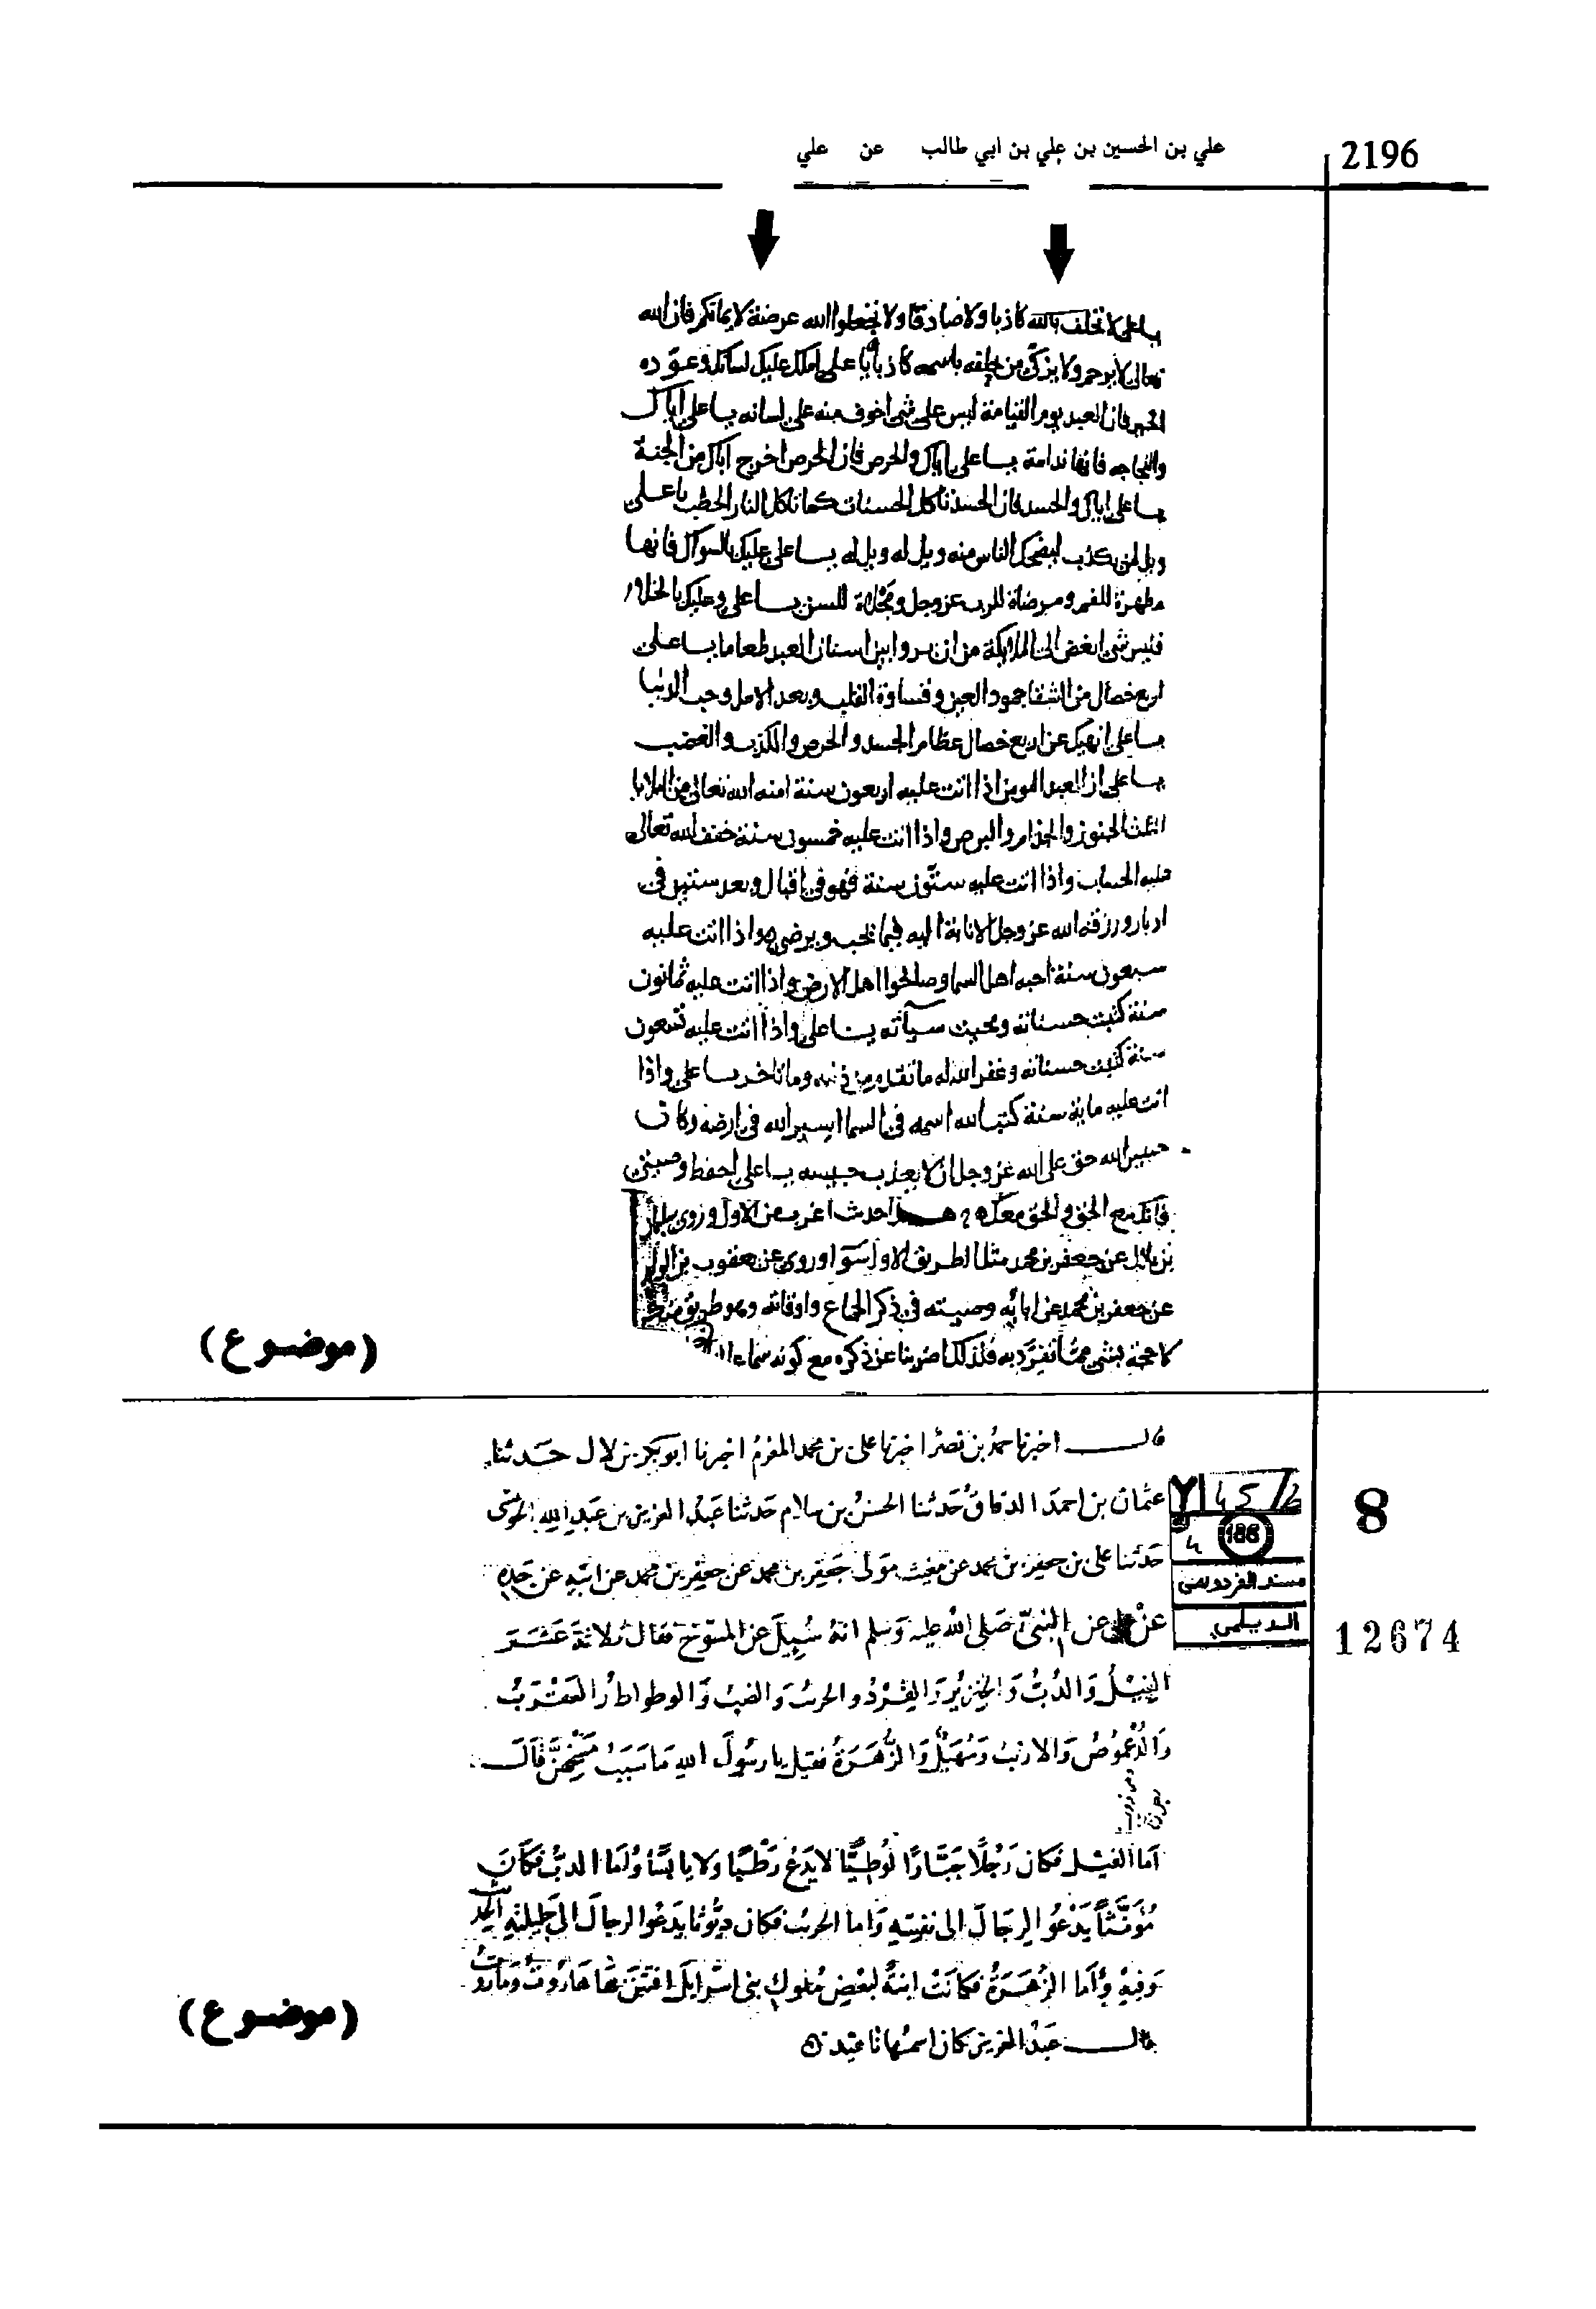 2196
علي بن الحسين بن علي بن ابي طالب عن علي
يا علي لا تحلف بالله كاذبا ولا صادقا ولا تجعلوا الله عرضة لايمانكم فان الله
تعالى لا يرحم ولا يزكي من حلف باسمه كاذبا يا علي املك عليك لسانك وعوده
الخير فان العبد يوم القيامة ليس على شي اخوف منه على لسانه يا علي اياك
واللجاجه فانها ندامة يا علي اياك والحرص فان الحرص اخرج اباك من الجنة
يا علي اياك والحسد فان الحسد تاكل الحسنات كما تاكل النار الحطب يا علي
ويل لمن يكذب ليضحك الناس منه ويل له ويل له يا علي عليك بالسواك فانها
مطهرة للفم ومرضاة للرب عز وجل ومجلاة للسن يا علي وعليك بالخلال
فليس شي ابغض الى الملايكة من ان يروا بين اسنان العبد طعاما يا علي
اربع خصال من الشقا جمود العين وقساوة القلب وبعد الامل وحب الدنيا
يا علي انهيك عن اربع خصال عظام الحسد والحرص والكذب والغضب
يا علي ان العبد المومن اذا اتت عليه اربعون سنة امنه الله تعالى من البلايا
الثلث الجنون والجذام والبرص واذا اتت عليه خمسون سنة خفف الله تعالى
عليه الحساب واذا اتت عليه ستون سنة فهو في اقبال وبعد ستين في
ادبار ورزقه الله عز وجل الانابة اليه فيما يحب ويرضى واذا اتت عليه
سبعون سنة احبه اهل السما وصالحوا اهل الارض واذا اتت عليه ثمانون
سنة كتبت حسناته ومحيت سيآته يا علي واذا اتت عليه تسعون
سنة كتبت حسناته وغفر الله له ما تقدم من ذنبه وما تاخر يا علي واذا
اتت عليه ماية سنة كتب الله اسمه في السما اسير الله في ارضه وكان
حبيس الله حق على الله عز وجل ان لا يعذب حبيسه يا علي احفظ وصيتي
فانك مع الحق والحق معك هذا حديث اغرب من الاول وروى سليمان
بن بلال عن جعفر بن محمد مثل الطريق الاول سوا وروي عن يعقوب بن الوليد
عن جعفر بن محمد عن ابايه وصيته في ذكر الجماع واوقاته وهو طريق
لا حجة بشي مما تفرد به فلذلك اضربنا عن ذكره مع كونه سماعا
(موضوع)
قال اخبرنا حمد بن نصر اخبرنا علي بن محمد المقرئ اخبرنا ابو بكر بن لال حدثنا
عثمان بن احمد الدقاق حدثنا الحسن بن سلام حدثنا عبد العزيز بن عبد الله
حدثنا علي بن جعفر بن محمد عن مغيث مولى جعفر بن محمد عن جعفر بن محمد عن ابيه عن جده
عن علي عن النبي صلى الله عليه وسلم انه سئل عن المسوخ فقال ثلاثة عشر
الفيل والدب والخنزير والقرد والحريث والضب والوطواط والعقرب
والدعموص والارنب وسهيل والزهرة فقيل يا رسول الله ما سبب مسخهن قال
اما الفيل فكان رجلا جبارا لوطيا لا يدع رطبا ولا يابسا واما الدب فكان
مؤنثا يدعوا الرجال الى نفسه واما الحريث فكان ديوثا يدعوا الرجال الى حليلته الحديث
وفيه واما الزهرة فكانت ابنة لبعض ملوك بني اسرايل افتتن بها هاروت وماروت
قال عبد العزيز كان اسمها ناهيد
(موضوع)
8
186
مسند الفردوس
الديلمي
12674